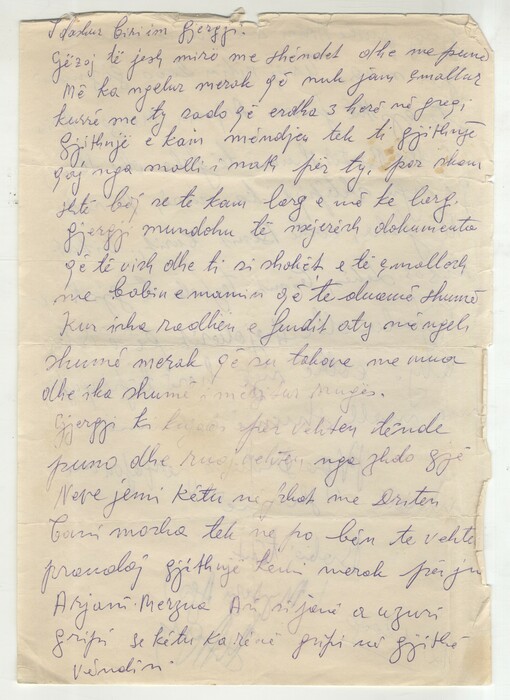 I dashur biri im Gjergji.
Gëzoj të jesh mirë me shëndet dhe me punë
Më ka ngelur merak që nuk jam çmallur
kurrë me ty sado që erdha 3 herë në greqi
gjithnjë e kam mëndjen tek ti gjithnjë
qaj nga malli i math për ty, por skam
shtë bëj se të kam larg e më ke larg.
gjergji mundohu të nxjerësh dokumenta
që të vish dhe ti si shokët e të çmallesh
me babin e mamin që të duamë shumë
Kur isha radhën e fundit aty më ngeli
shumë merak që su takove me mua
dhe ika shumë i mërzitur rrugës.
Gjergji ki kujdes për vehten tënde
puno dhe ruaj vehten nga zhdo gjë
Neve jemi këtu në fshat me Driten
tani mocka tek ne po bën të vehtë
prandaj gjithnjë kemi merak për ju
Arjani Merzna Ari si janë a u zuri
gripi se këtu ka rënë gripi në gjithë
vëndin.